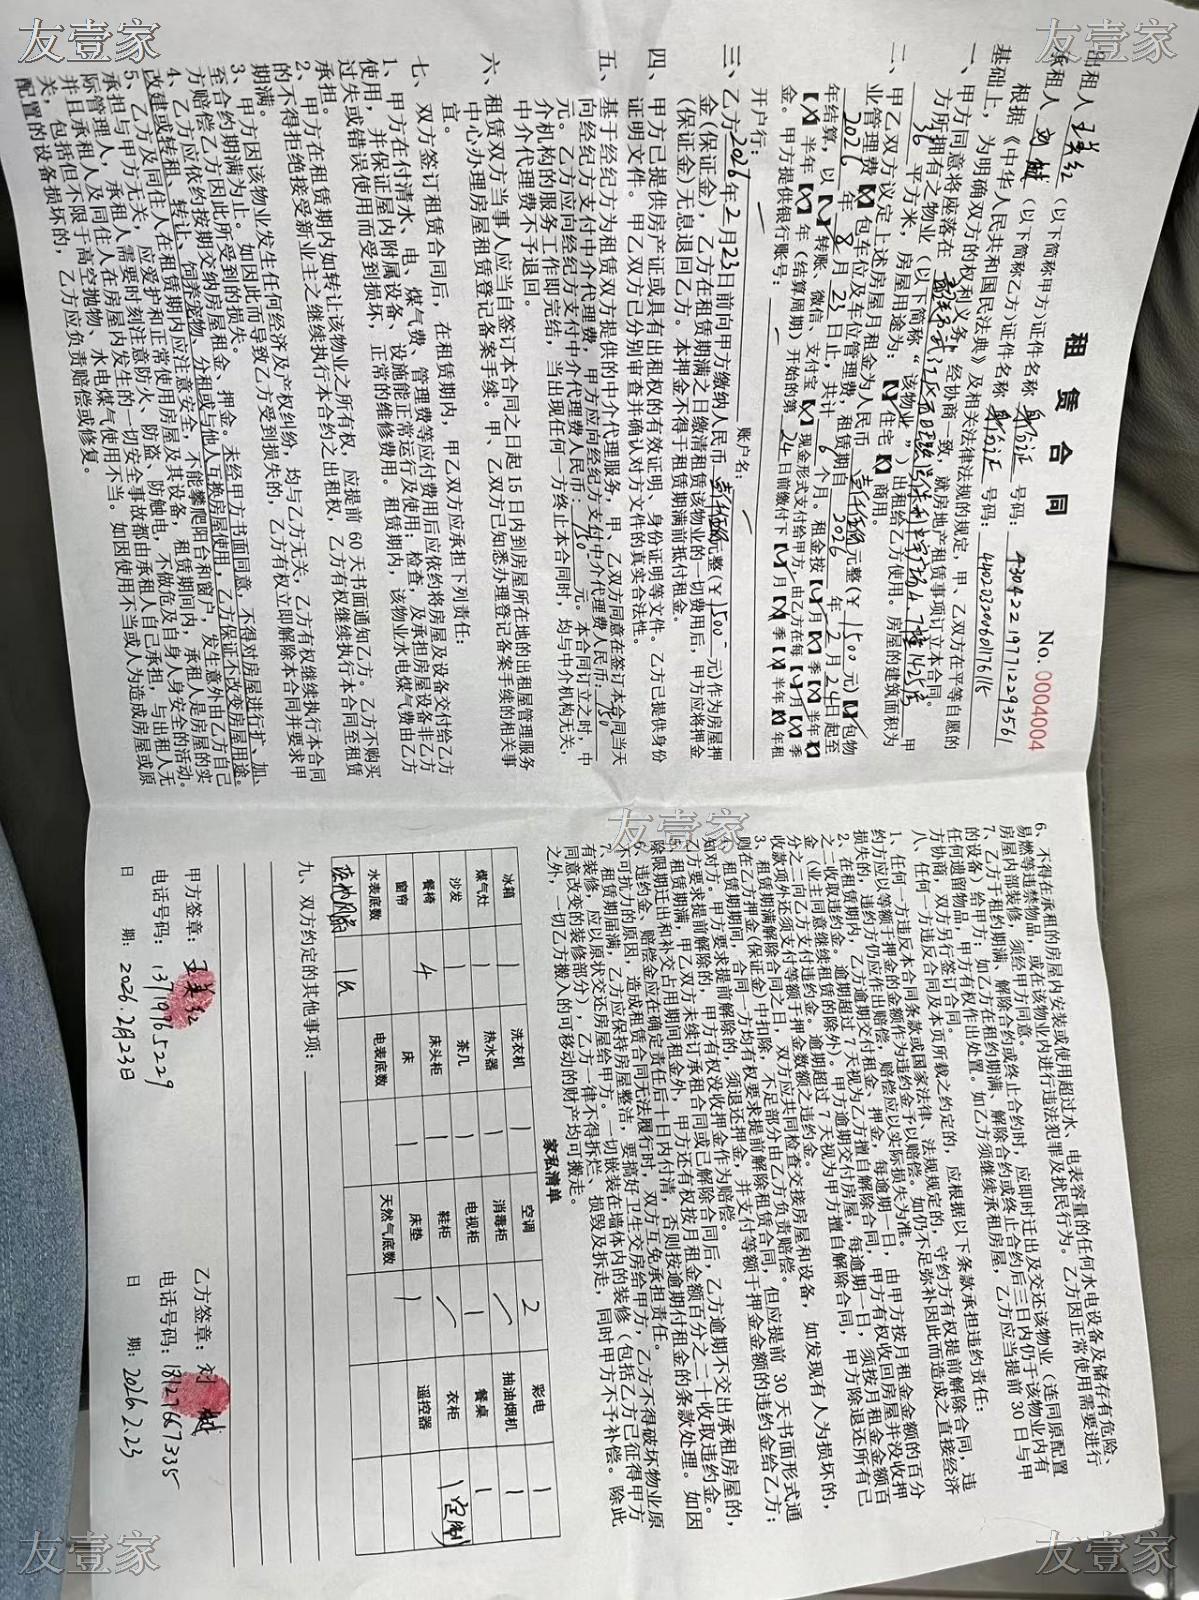 友壹家
友壹家
租 赁 合 同
No. 0004004
出租人 (以下简称甲方)证件名称 身份证 号码: 430422197712293561
承租人 (以下简称乙方)证件名称 身份证 号码: 440203200601176115
根据《中华人民共和国民法典》及相关法律法规的规定,甲、乙双方在平等自愿的
基础上,为明确双方的权利义务,经协商一致,就房地产租赁事项订立本合同。
一、甲方同意将座落在 甲
方所拥有之物业(以下简称“该物业”)出租给乙方使用。房屋的建筑面积为
36 平方米,房屋用途为:【】住宅【】商用。
二、甲乙双方议定上述房屋月租金为人民币 壹仟伍佰元整(¥ 1500 元)【】包物
业管理费【】包车位及车位管理费,租赁期自 2026 年 2 月 24 日起至
2026 年 8 月 23 日止,共计 6 个月。租金按【】月【】季【】半年【】
年结算,以【】转账、微信、支付宝【】现金形式支付给甲方,由乙方在每【】月【】季
【】半年【】年(结算周期)开始的第 24 日前缴付下【】月【】季【】半年【】年租
金。甲方提供银行账号:
开户行: 账户名:
三、乙方 2026 年 2 月 23 日前向甲方缴纳人民币 壹仟伍佰元整(¥ 1500 元)作为房屋押
金(保证金),乙方在租赁期满之日缴清租赁该物业的一切费用后,甲方应将押金
(保证金)无息退回乙方。本押金不得于租赁期满前抵付租金。
四、甲方已提供房产证或具有出租权的有效证明、身份证明等文件。乙方已提供身份
证明文件。甲乙双方已分别审查并确认对方文件的真实合法性。
五、基于经纪方为租赁双方提供的中介代理服务,甲、乙双方同意在签订本合同当天
向经纪方支付中介代理费,甲方应向经纪方支付中介代理费人民币: 750
元。乙方应向经纪方支付中介代理费人民币: 750 元。本合同订立之时,中
介机构的服务工作即完结,当出现任何一方终止本合同时,均与中介机构无关,
中介代理费不予退回。
六、租赁双方当事人应当自签订本合同之日起 15 日内到房屋所在地的出租屋管理服务
中心办理房屋租赁登记备案手续。甲、乙双方已知悉办理登记备案手续的相关事
宜。
七、双方签订租赁合同后,在租赁期内,甲乙双方应承担下列责任:
1、甲方在付清水、电、煤气费、管理费等应付费用后应依约将房屋及设备交付给乙方
使用,并保证屋内附属设备、设施能正常运行及使用;检查,及承担房屋设备非乙方
过失或错误使用而受到损坏,正常的维修费用。租赁期内,该物业水电煤气费由乙方
承担。
2、甲方在租赁期内如转让该物业之所有权,应提前 60 天书面通知乙方。乙方不购买
的不得拒绝接受新业主之继续执行本合约之出租权,乙方有权继续执行本合同至租赁
期满。
3、甲方因该物业发生任何经济及产权纠纷,均与乙方无关,乙方有权继续执行本合同
至合约期满为止。如因此而导致乙方受到损失的,乙方有权立即解除本合同并要求甲
方赔偿乙方因此所受到的损失。
4、乙方应依约按期交纳房屋租金、押金。未经甲方书面同意,不得对房屋进行扩、加、
改建或转租、转让、饲养宠物、分租或与他人互换房屋使用,乙方保证不改变房屋用途。
5、乙方及同住人在租赁期内应注意安全,不能攀爬阳台和窗户,发生意外由乙方自己
承担与甲方无关,应爱护和正常使用房屋及其设备,租赁期间内,承租人是房屋的实
际管理人,承租人需要时刻注意防火、防盗、防触电,不做危及自身人身安全的活动。
并且承租人及同住人在房屋内发生的一切安全事故都由承租人自己承担,与出租人无
关,包括但不限于高空抛物、水电煤气使用不当。如因使用不当或人为造成房屋或原
配置的设备损坏的,乙方应负责赔偿或修复。
友壹家
6、不得在承租的房屋内安装或使用超过水、电表容量的任何水电设备及储存有危险、
易燃等违禁物品,或在该物业内进行违法犯罪及扰民行为。乙方因正常使用需要进行
房屋内部装修,须经甲方同意。
7、乙方于租约期满、解除合约或终止合约时,应即时迁出及交还该物业(连同原配置
的设备)给甲方;如乙方在租约期满、解除合约或终止合约后三日内仍于该物业内有
任何遗留物品,甲方有权作出处置。如乙方须继续承租房屋,乙方应当提前 30 日与甲
方协商,双方另行签订合同。
八、任何一方违反合同及本页所载之约定的,应根据以下条款承担违约责任:
1、任何一方违反本合同条款或国家法律、法规规定的,守约方有权提前解除合同,违
约方应以等额于押金的金额作为违约金予以赔偿。如仍不足弥补因此而造成之直接经济
损失的,违约方仍应作出赔偿,赔偿应以实际损失为准。
2、在租赁期内,乙方逾期交付租金、押金,每逾期一日,由甲方按月租金金额的百分
之二收取违约金。逾期超过 7 天视为乙方擅自解除合同,甲方有权收回房屋并没收押
金(业主同意继续租赁的除外)。甲方逾期交付房屋,每逾期一日,须按月租金金额百
分之二向乙方支付违约金,逾期超过 7 天视为甲方擅自解除合同,甲方除退还所有已
收款项外还须支付等额于押金数额之违约金。
3、租赁期满解除合同之日,双方应共同检查交接房屋和设备,如发现有人为损坏的,
则在乙方押金(保证金)中扣除,不足部分由乙方负责赔偿。
4、租赁期期间,合同一方均有权要求提前解除租赁合同,但应提前 30 天书面形式通
知对方。甲方要求提前解除的,须退还押金,并支付等额于押金金额的违约金给乙方;
乙方要求提前解除的,甲方有权没收押金作为赔偿。
5、租赁期满,甲乙双方未续订承租合同或已解除合同后,乙方逾期不交出承租房屋的,
除限期迁出和补交占用期间租金外,甲方还有权按月租金额百分之二十收取违约金。
6、违约金、赔偿金应在确定责任后十日内付清,否则按逾期付租金的条款处理。如因
不可抗力的原因,造成租赁合同无法履行时,双方互免承担责任。
7、租赁期届满,乙方应保持房屋整洁,要搞好卫生交房给甲方,乙方不得破坏物业原
有装修,应以原状交还房屋给甲方。一切嵌装在墙体内的装修(包括乙方已征得甲方
同意改变的装修部分),乙方一律不得拆烂、损毁及拆走,同时甲方不予补偿。除此
之外,一切乙方搬入的可移动的财产均可搬走。
家私清单
冰箱 1 洗衣机 1 空调 2 彩电 1
煤气灶 1 热水器 1 消毒柜 抽油烟机 1
沙发 1 茶几 1 电视柜 1 餐桌 1
餐椅 4 床头柜 1 鞋柜 衣柜 1(定制)
窗帘 床 1 床垫 1 遥控器
水表底数 电表底数 天然气底数
1台
九、双方约定的其他事项:
甲方签章: 乙方签章:
电话号码: 13719965229 电话号码: 18127667335
日 期: 2026.2月23日 日 期: 2026.2.23
友壹家
友壹家